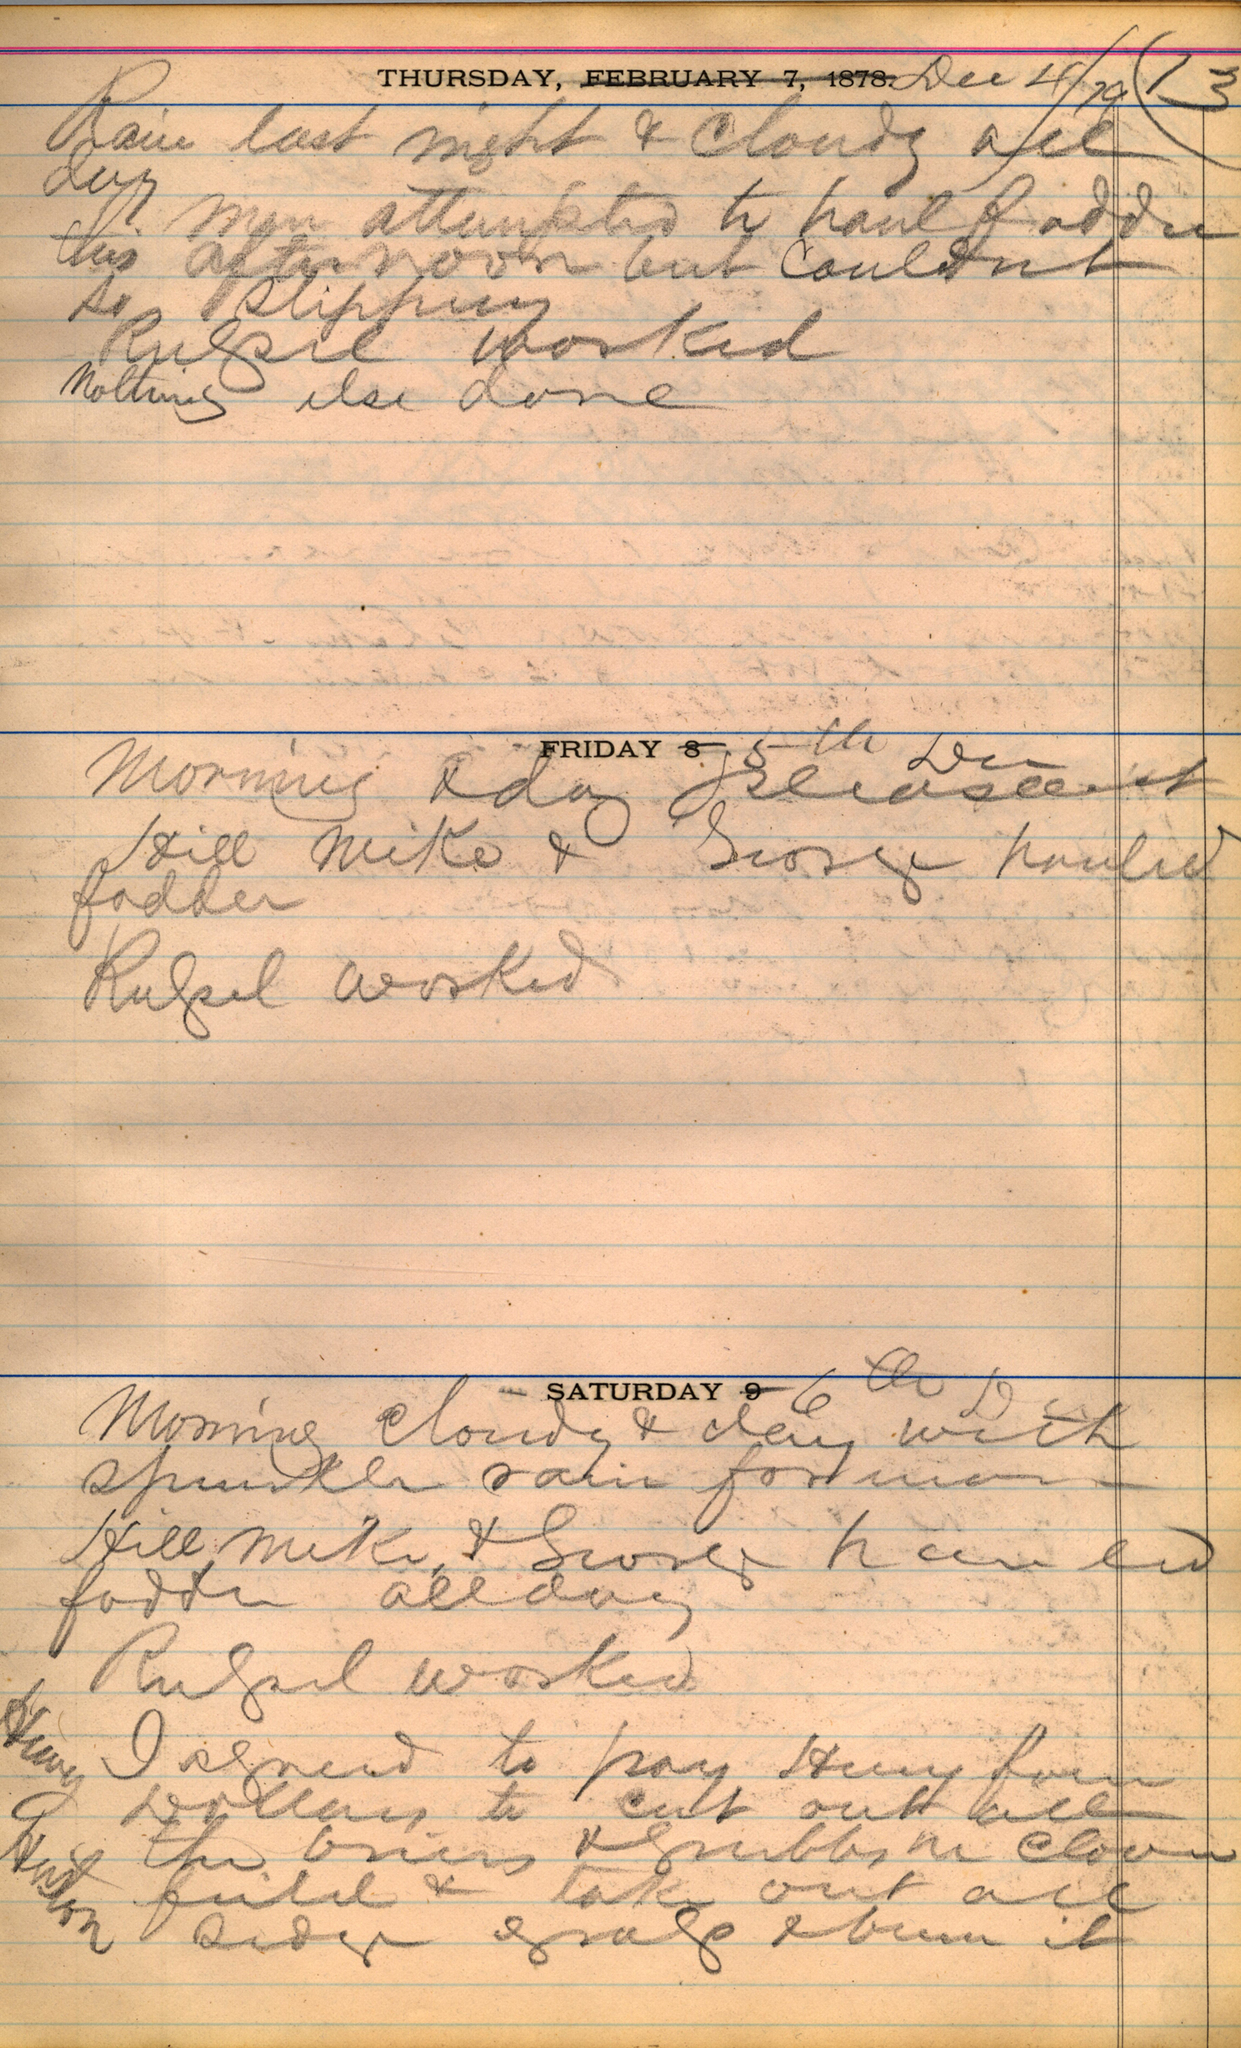 THURSDAY, FEBRUARY 7, 1878. Dec 4/79 (13
Rain last night & Cloudy all
day
Men attempted to haul fodder
this afternoon but Couldnt
so slippery
Russel worked
Nothing else done
FRIDAY 8 5th Dec
Morning & day pleasant
Hill Mike & George hauled
fodder
Russel worked
SATURDAY 9 6th Dec
Morning cloudy & day with
sprinkle rain for
Hill Mike & George hauled
fodder all day
Russel worked
Henry I agreed to pay Henry four
Dollars to cut out all
the briers & Grubbs in Clover
Hinton field & take out all
sedge grass & burn it